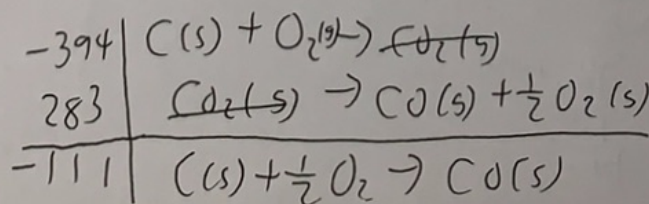 -394 | C(s) + O₂(g) → ~~CO₂(s)~~
283 | ~~CO₂(s)~~ → CO(s) + ½ O₂(s)
-111 | C(s) + ½ O₂ → CO(s)